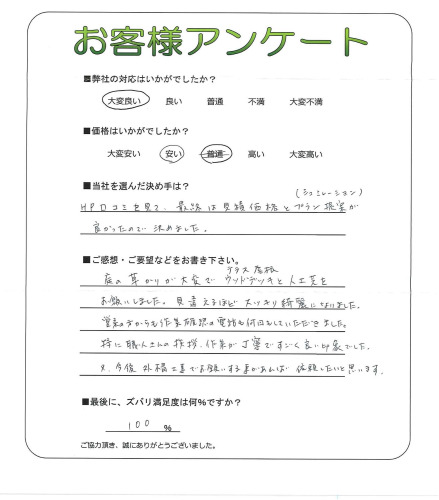 お客様アンケート
■弊社の対応はいかがでしたか?
大変良い 良い 普通 不満 大変不満
■価格はいかがでしたか?
大変安い 安い 普通 高い 大変高い
■当社を選んだ決め手は?
(シュミレーション)
HP口コミを見て、最終は見積価格とプラン提案が
良かったので決めました。
■ご感想・ご要望などをお書き下さい。
テラス屋根
庭の草かりが大変でウッドデッキと人工芝を
お願いしました。見違えるほどスッキリ綺麗になりました。
営業の方からも作業確認の電話も何回もしていただきました。
特に職人さんの挨拶、作業が丁寧ですごく良い印象でした。
又、今後外構工事でお願いする事があれば依頼したいと思います。
■最後に、ズバリ満足度は何%ですか?
100 %
ご協力頂き、誠にありがとうございました。